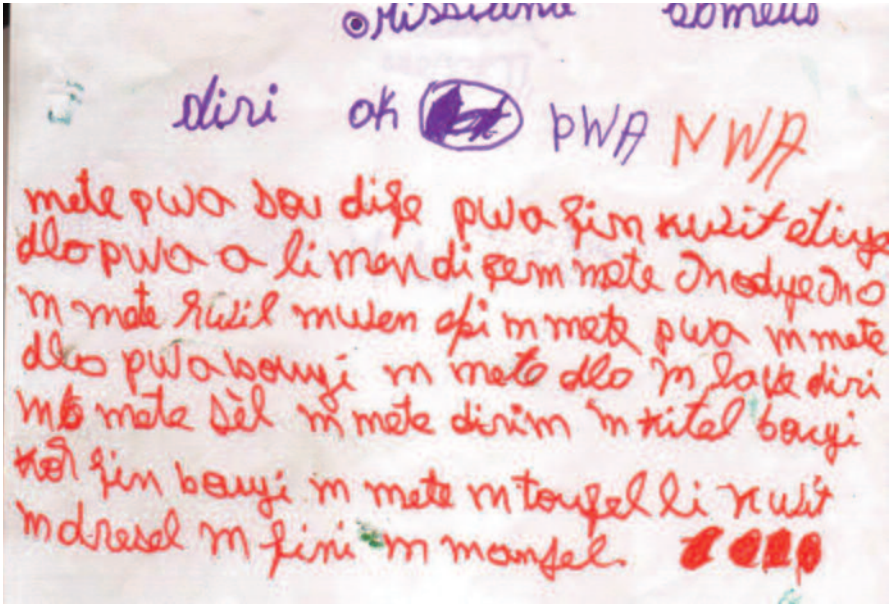 diri ok pwA NWA
mete pwa sou dife pwa fin kwit etiye
dlo pwa a li men di fem mete
m mete lwil mwen epi m mete pwa m mete
dlo pwa bouyi m mete dlo m lave diri
m mete sèl m mete dirim m kitel bouyi
fin bouyi m mete m toufel li kwit
m dresel m fini m manjel.